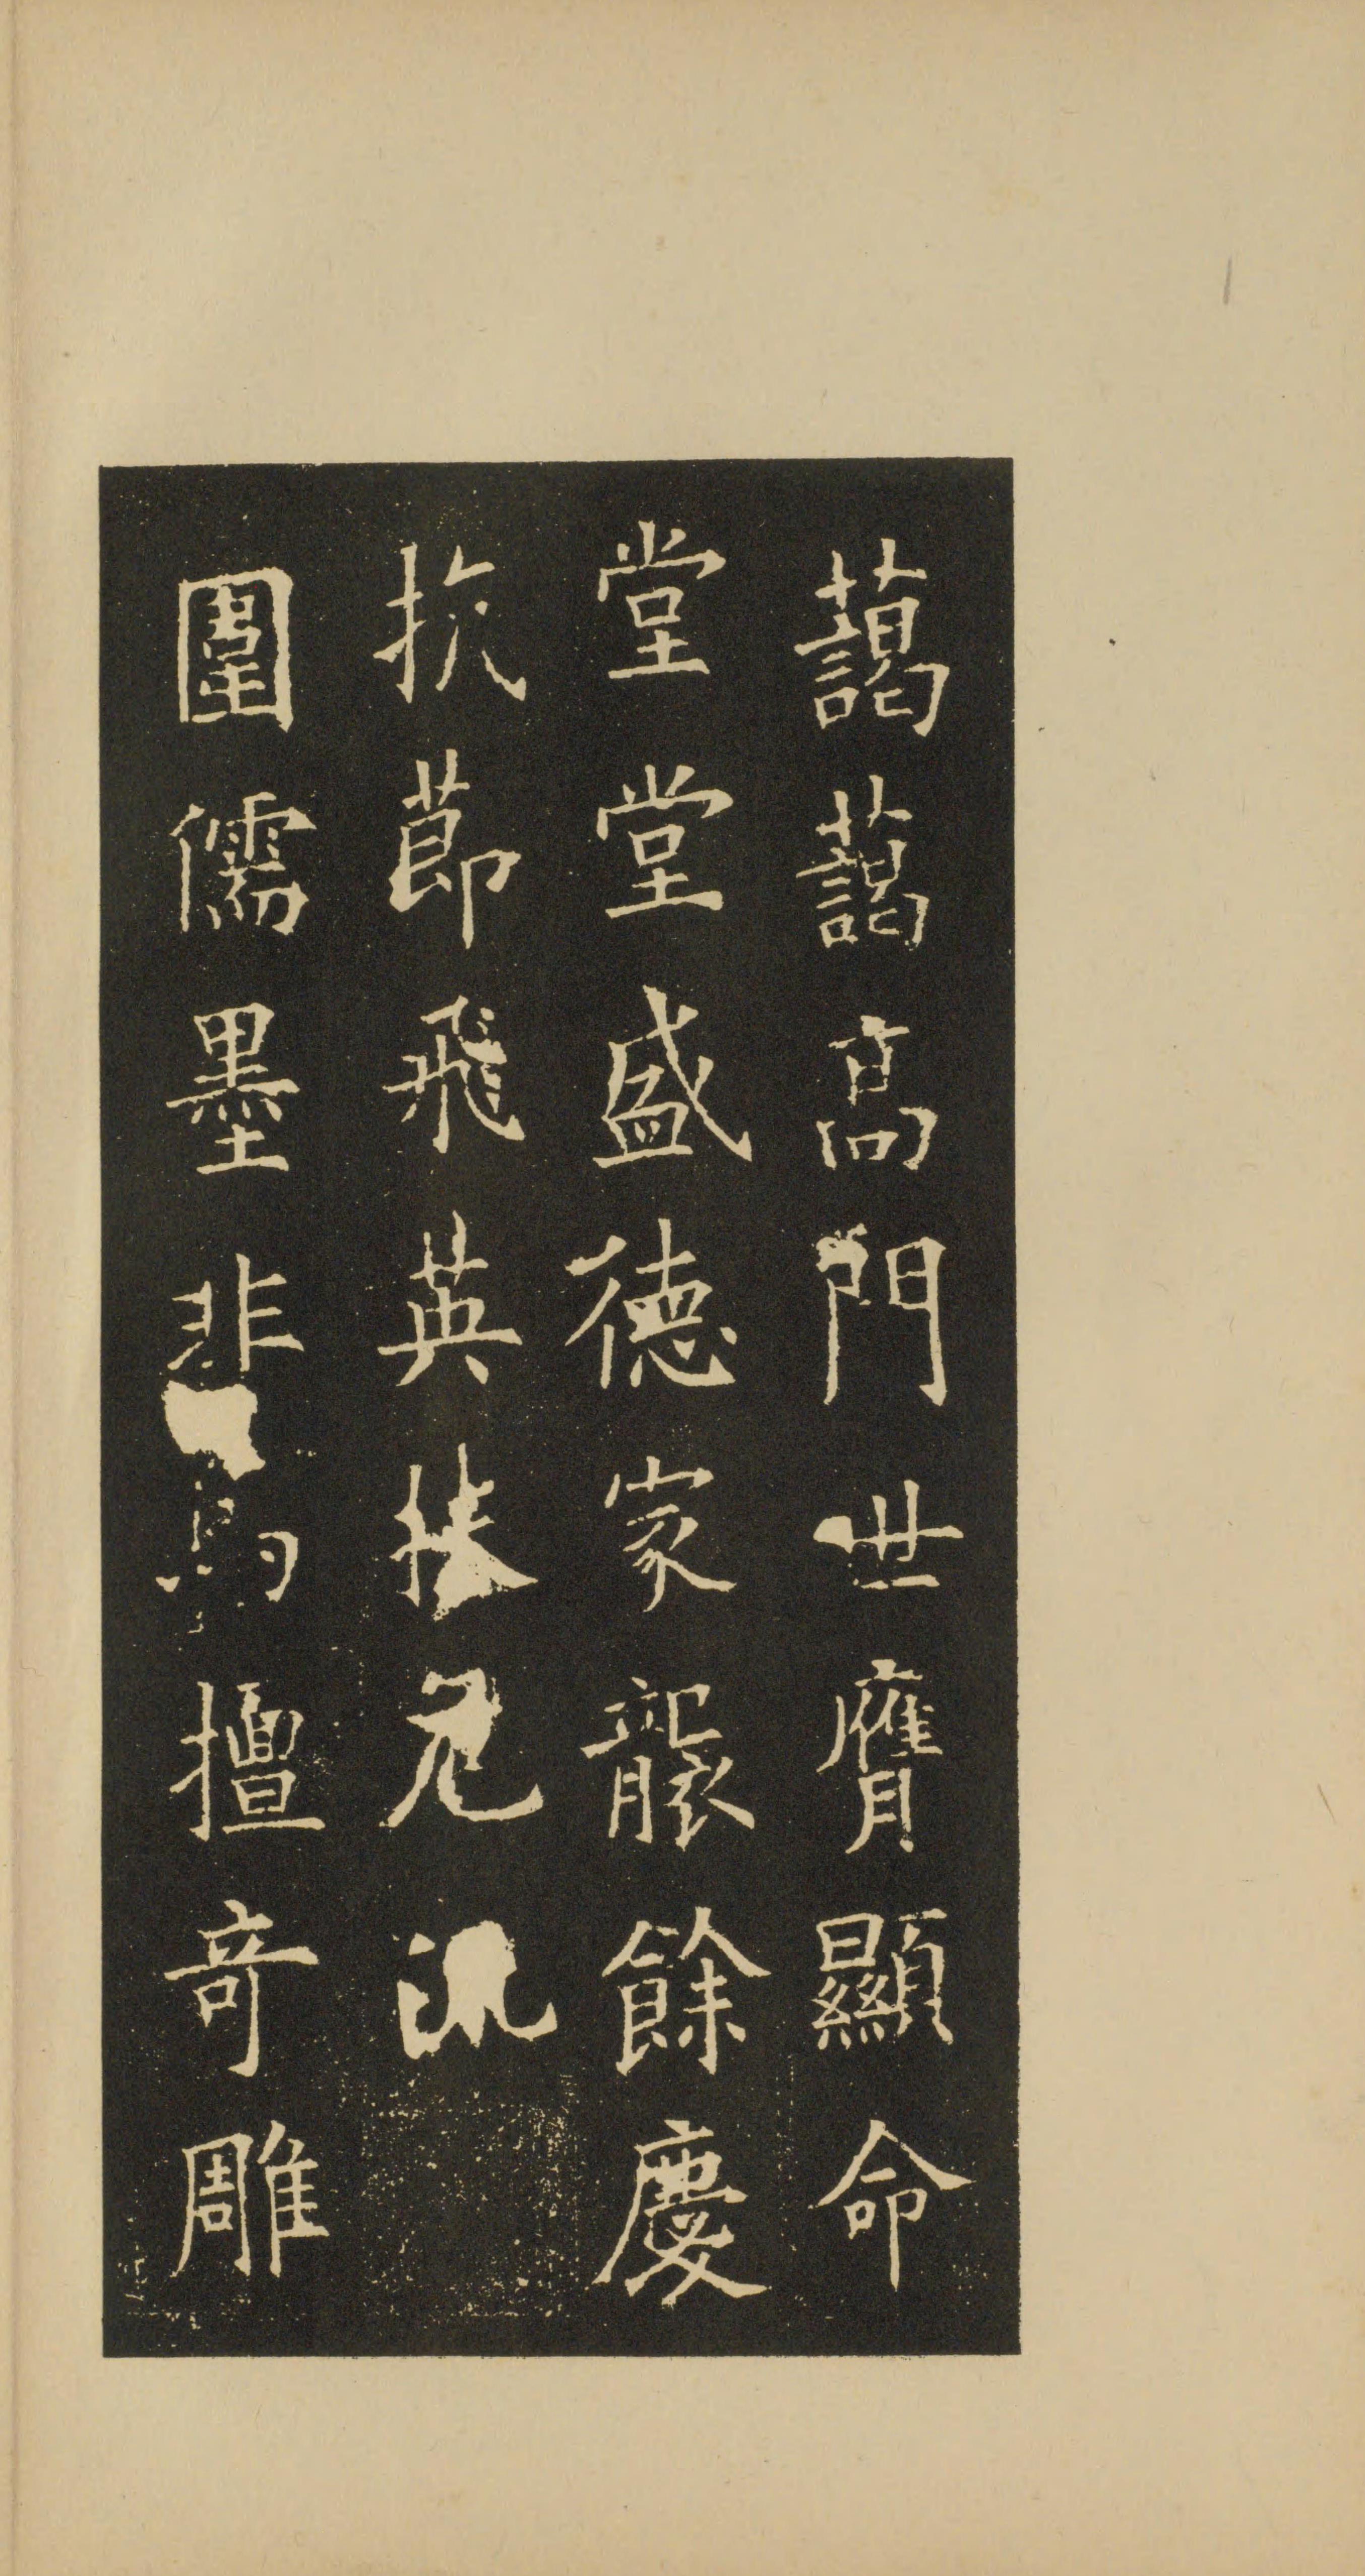 藹藹高門世膺顯命
堂堂盛德家襲餘慶
抗節飛英危
圍儒墨非擅奇雕